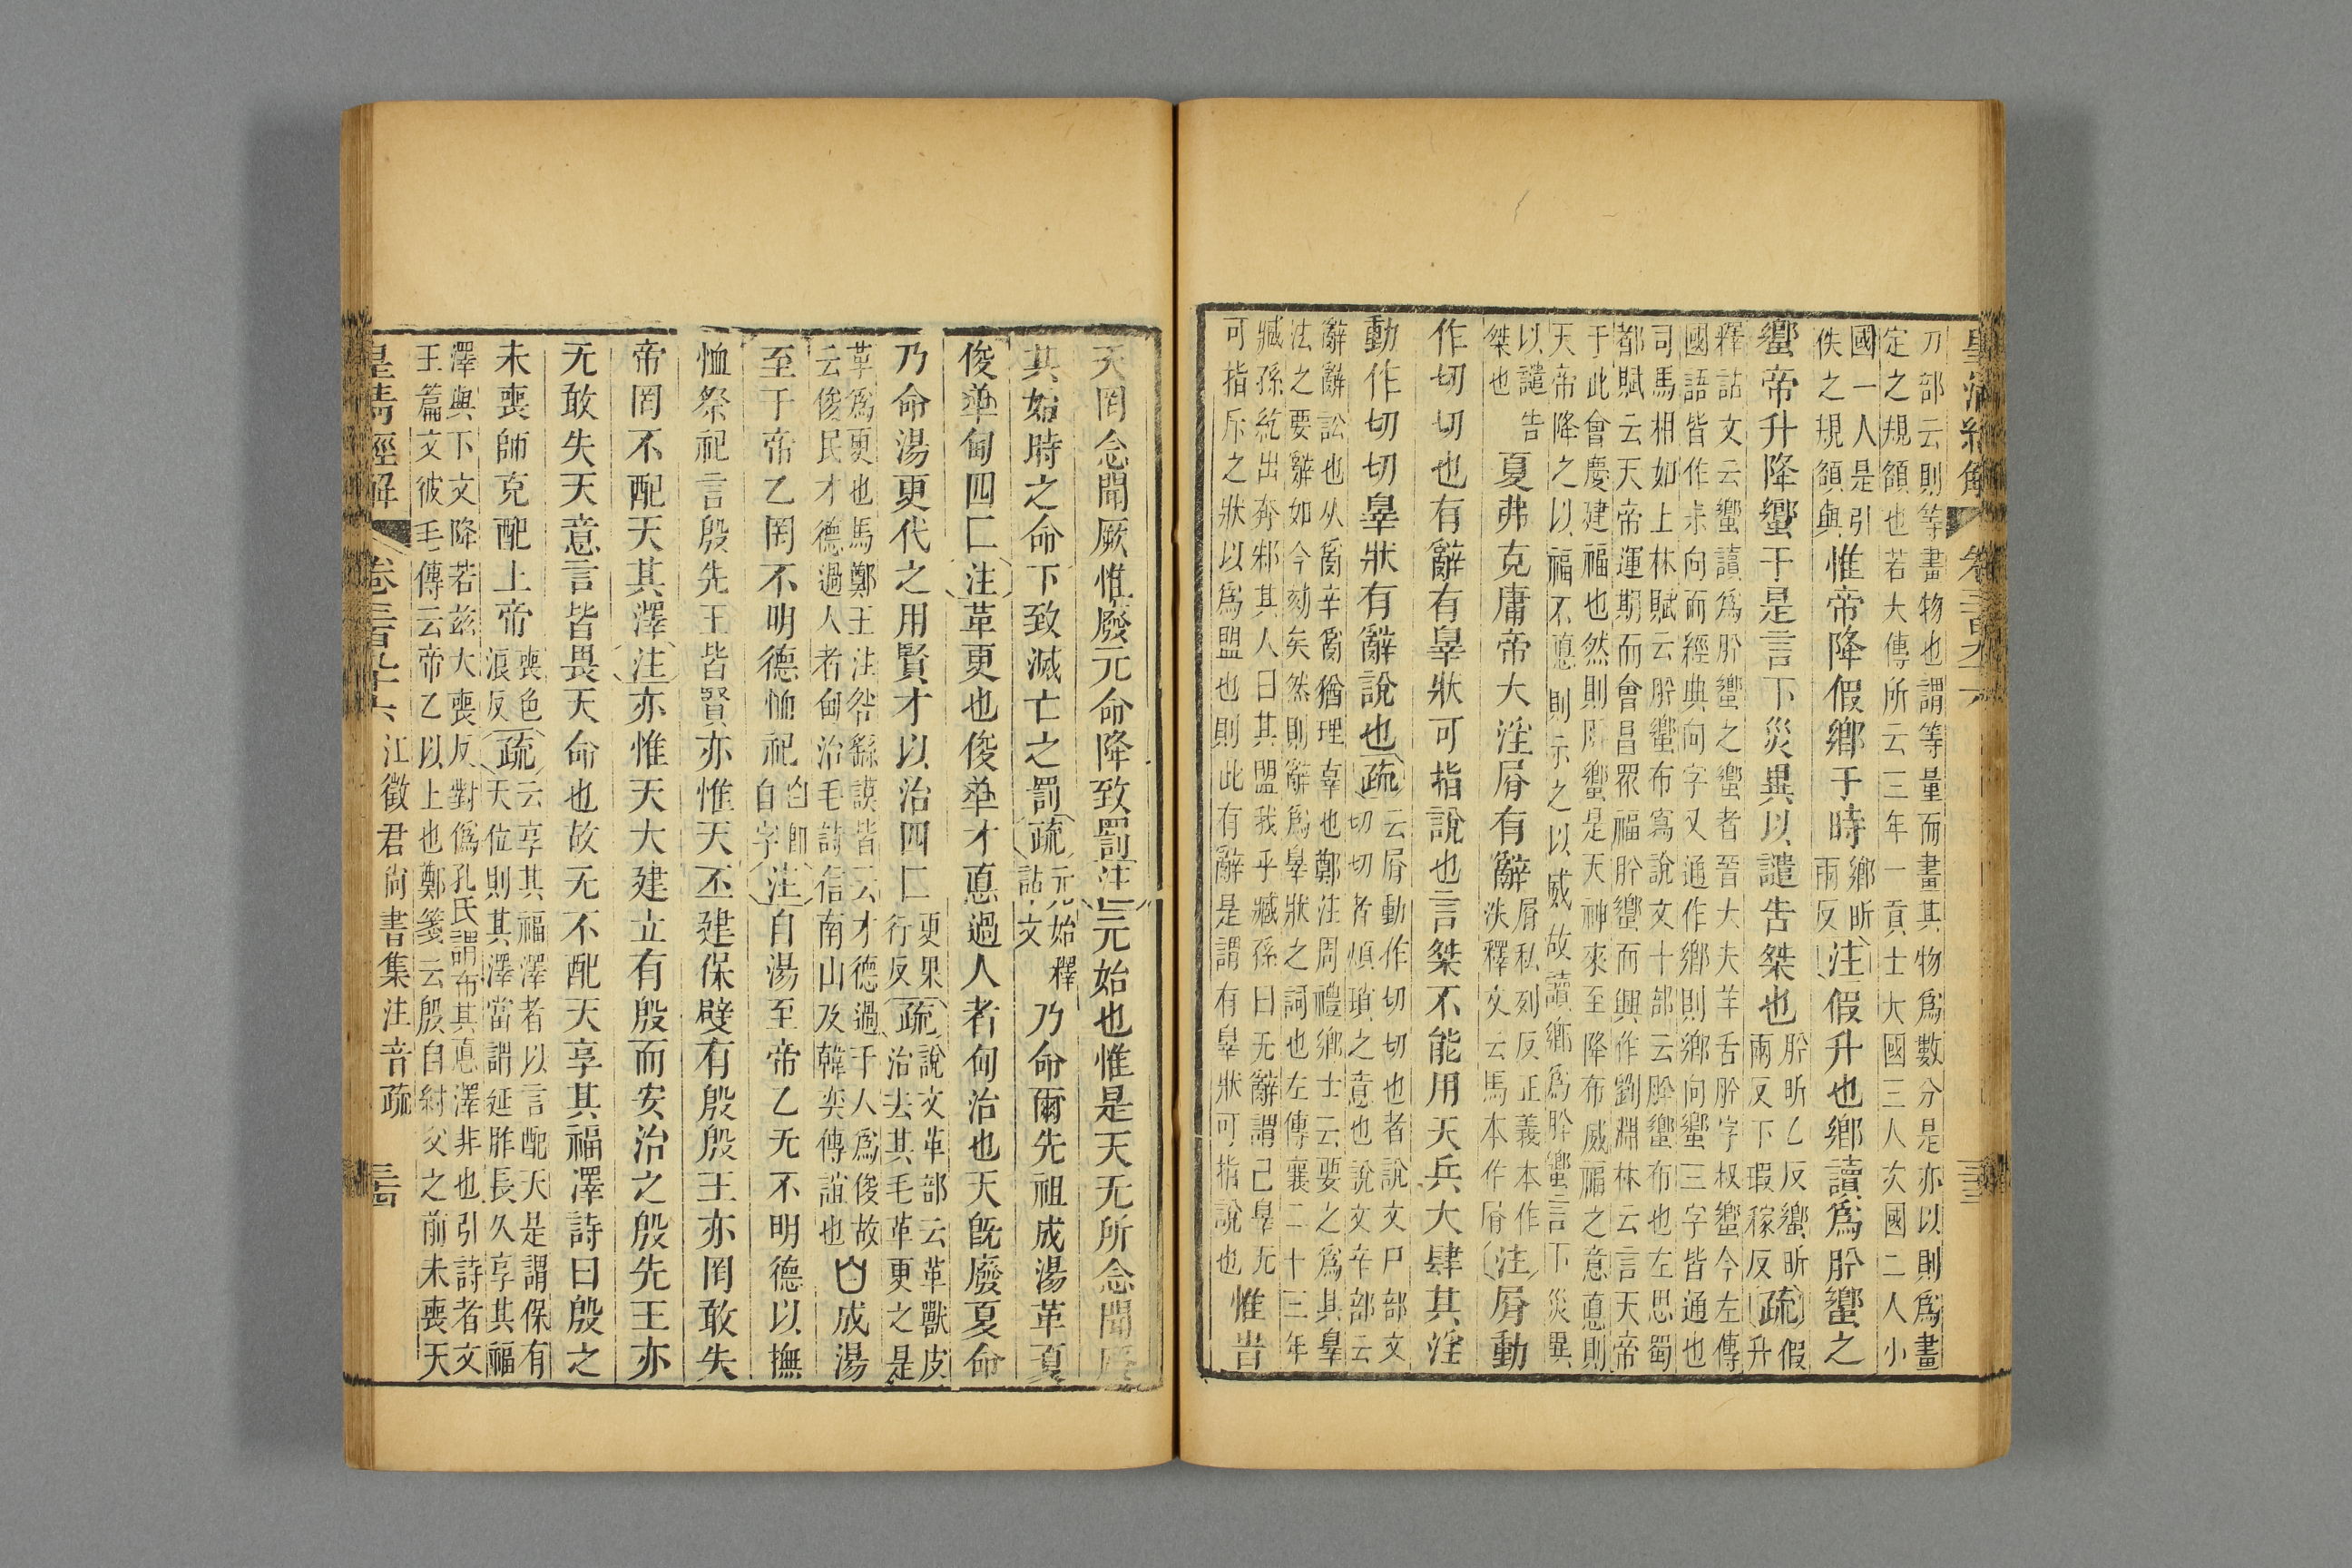 皇淸經解
卷三百九十六
三三
刀部云則等畫物也謂等量而畫其物爲數分是亦以則爲畫
定之規額也若大傳所云三年一貢士大國三人次國二人小
國一人是引
佚之規額與
惟帝降假鄉于時
鄉昕
兩反
注假升也鄉讀爲肸蠁之
蠁帝升降蠁于是言下災異以譴告桀也
肸昕乙反蠁昕
兩反下瑕稼反
疏
假
升
釋詁文云蠁讀爲肸蠁之蠁者晉大夫羊舌肸字叔蠁今左傳
國語皆作未向而經典向字又通作鄉則鄉向蠁三字皆通也
司馬相如上林賦云肸蠁布寫說文十部云肸蠁布也左思蜀
都賦云天帝運期而會昌睪福肸蠁而興作劉淵林云言天帝
于此會慶建福也然則肸蠁是天神來至降布威福之意悳則
天帝降之以福不悳則示之以威故讀鄉爲肸蠁言下災異
以譴告
桀也
夏弗克庸帝大淫屑有辭
屑私列反正義本作
泆釋文云馬本作屑
注屑動
作切切也有辭有辠狀可指說也言桀不能用天兵大肆其淫
動作切切辠狀有辭說也疏
云屑動作切切也者說文尸部文
切切者傎瑣之意也說文辛部云
辭辭訟也从𤔲辛𤔲猶理辜也鄭注周禮鄉士云要之爲其辠
法之要辭如今劾矣然則辭爲辠狀之詞也左傳襄二十三年
臧孫紇出奔邾其人曰其盟我乎臧孫曰无辭謂己辠无
可指斥之狀以爲盟也則此有辭是謂有辠狀可指說也
惟旹
天罔念聞厥惟廢元命降致罰注元始也惟是天无所念聞廢
其始時之命下致滅亡之罰疏
元始釋
詁文
乃命爾先祖成湯革夏
俊㽙甸四匚注革更也俊㽙才悳過人者甸治也天旣廢夏命
乃命湯更代之用賢才以治四匚
更果
行反
疏
說文革部云革獸皮
治去其毛革更之是
革爲更也馬鄭王注咎繇謨皆云才德過千人爲俊故
云俊民才德過人者甸治毛詩信南山及韓奕傳誼也
自成湯
至于帝乙罔不明德恤祀
𦣹卽
自字
注自湯至帝乙无不明德以撫
恤祭祀言殷先王皆賢亦惟天丕建保嬖有殷殷王亦罔敢失
帝罔不配天其澤注亦惟天大建立有殷而安治之殷先王亦
无敢失天意言皆畏天命也故无不配天享其福澤詩曰殷之
未喪師克配上帝
喪色
浪反
疏
云享其福澤者以言配天是謂保有
天位則其澤當謂延胙長久享其福
澤與下文降若玆大喪反對僞孔氏謂布其悳澤非也引詩者文
王篇文彼毛傳云帝乙以上也鄭箋云殷自紂父之前未喪天
皇淸經解
卷三百九十六
江徵君尙書集注音疏
三四